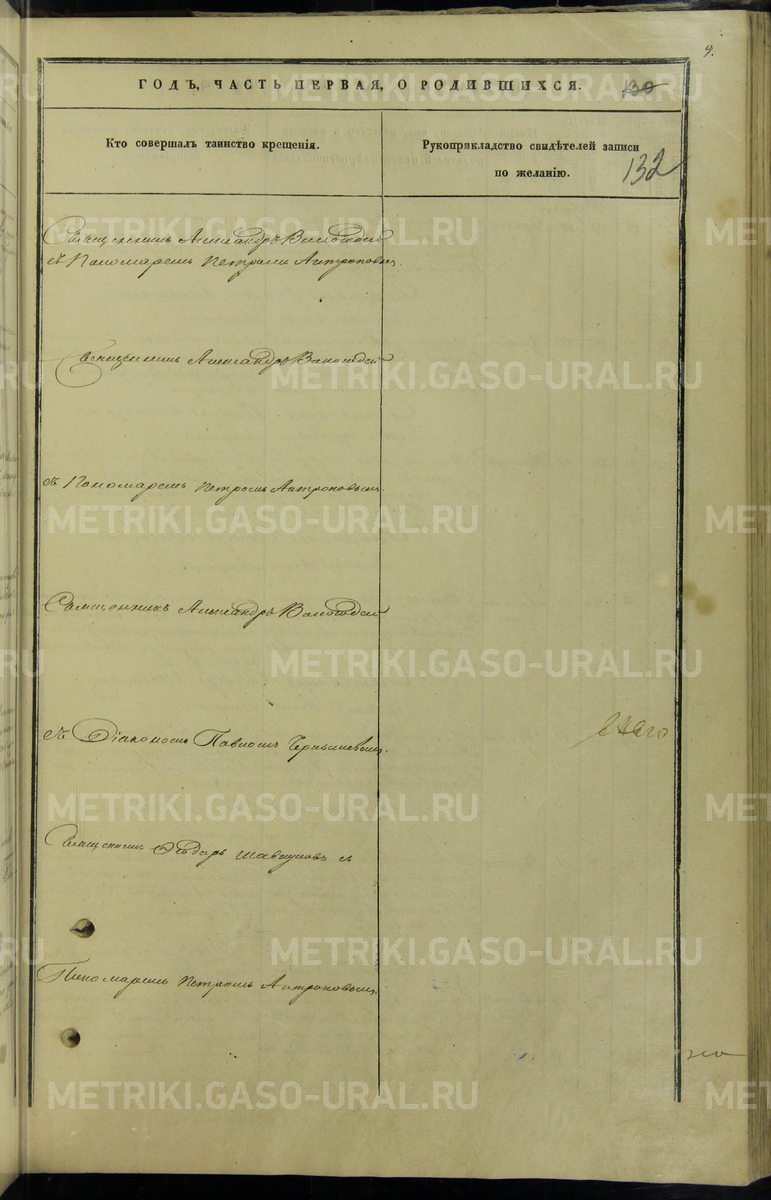 9.
ГОДЪ, ЧАСТЬ ПЕРВАЯ, О РОДИВШИХСЯ.
130
Кто совершалъ таинство крещенія.
Рукоприкладство свидѣтелей записи
по желанію.
132
Священникъ Александръ
съ Пономаремъ Петромъ Антроповымъ.
Священникъ Александръ
съ Пономаремъ Петромъ Антроповымъ.
Священникъ Александръ
съ Діакономъ Павломъ
Священникъ Ѳедоръ съ
Пономаремъ Петромъ Антроповымъ.
METRIKI.GASO-URAL.RU